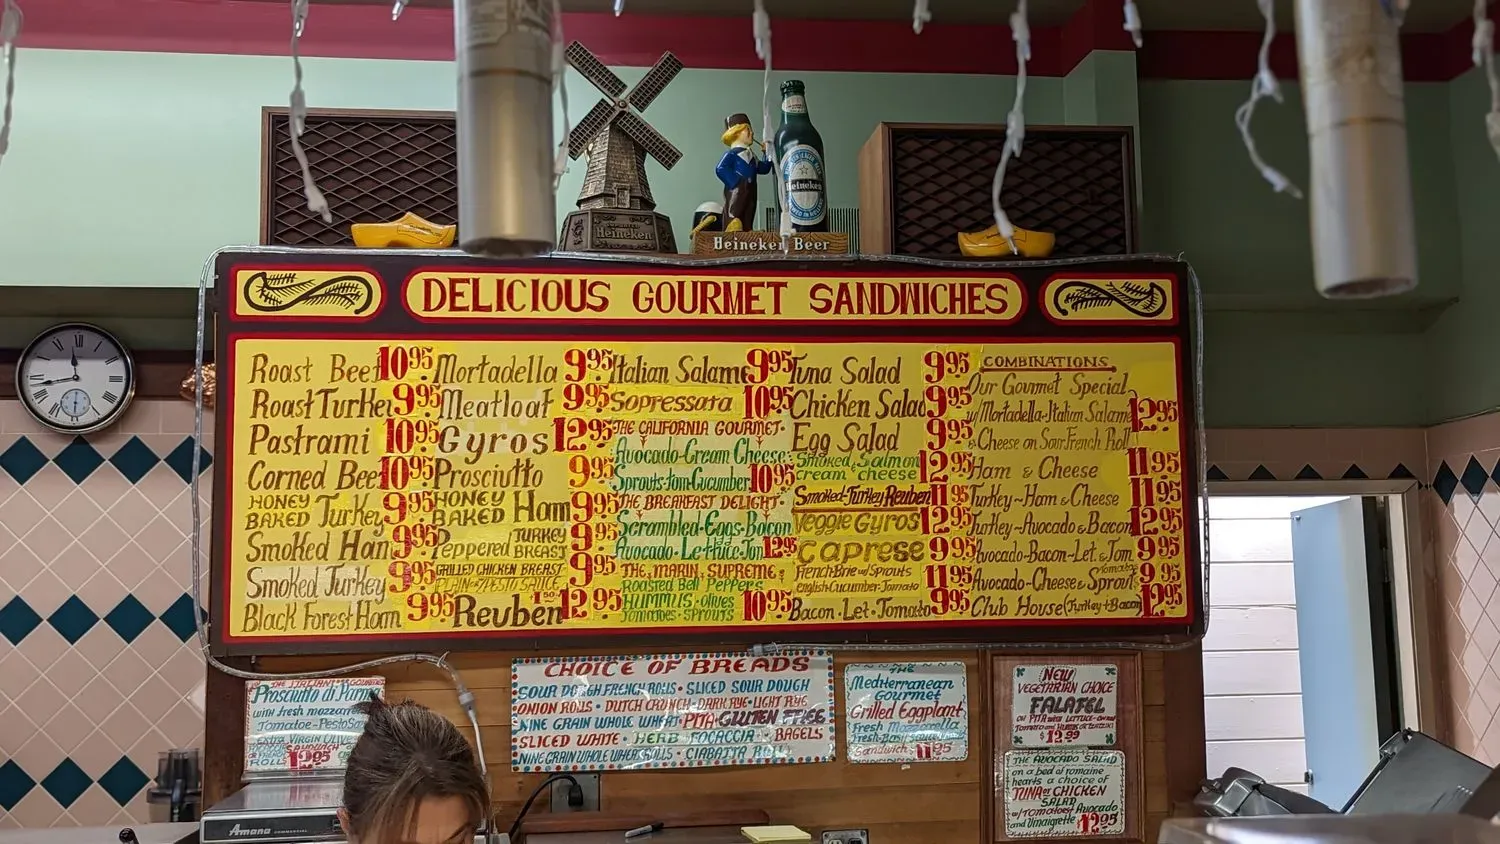 Heineken
Heineken
Heineken Beer
DELICIOUS GOURMET SANDWICHES
Roast Beef 10.95
Roast Turkey 9.95
Pastrami 10.95
Corned Beef 10.95
HONEY BAKED Turkey 9.95
Smoked Ham 9.95
Smoked Turkey 9.95
Black Forest Ham 9.95
Mortadella 9.95
Meatloaf 9.95
Gyros 12.95
Prosciutto 9.95
HONEY BAKED Ham 9.95
Peppered TURKEY BREAST 9.95
GRILLED CHICKEN BREAST 9.95
PLAIN or PESTO SAUCE
Reuben 12.95
Italian Salame 9.95
Sopressata 10.95
THE CALIFORNIA GOURMET
Avocado-Cream Cheese
Sprouts-tom-Cucumber 10.95
THE BREAKFAST DELIGHT
Scrambled-Eggs-Bacon
Avocado-Lettuce-Tom 12.95
THE MARIN SUPREME
Roasted Bell Peppers
HUMMUS-Olives
Tomatoes-Sprouts 10.95
Tuna Salad 9.95
Chicken Salad 9.95
Egg Salad 9.95
Smoked Salmon
cream cheese 12.95
Smoked-Turkey Reuben 11.95
Veggie Gyros 12.95
Caprese 9.95
French Brie w/ Sprouts
English Cucumber-Tomato 11.95
Bacon-Let-Tomato 9.95
COMBINATIONS
Our Gourmet Special
w/Mortadella-Italian Salame 12.95
& Cheese on Sour French Roll
Ham & Cheese 11.95
Turkey-Ham & Cheese 11.95
Turkey-Avocado & Bacon 12.95
Avocado-Bacon-Let & Tom 9.95
Avocado-Cheese & Sprout Tomato 9.95
Club House (Turkey & Bacon) 12.95
THE ITALIAN GOURMET
Prosciutto di Parma
with fresh mozzarella
Tomatoe-Pesto Sauce
Extra Virgin Olive
ROLLS SANDWICH 12.95
CHOICE OF BREADS
SOUR DOUGH FRENCH ROLLS • SLICED SOUR DOUGH
ONION ROLLS • DUTCH CRUNCH • DARK RYE • LIGHT RYE
NINE GRAIN WHOLE WHEAT • PITA • GLUTEN FREE
SLICED WHITE • HERB FOCACCIA • BAGELS
NINE GRAIN WHOLE WHEAT ROLLS • CIABATTA ROLL
THE
Mediterranean
Gourmet
Grilled Eggplant
Fresh Mozzarella
Sandwich 11.95
NEW
VEGETARIAN CHOICE
FALAFEL
$12.99
THE AVOCADO SALAD
on a bed of romaine
hearts a choice of
TUNA or CHICKEN
SALAD
w/TOMATOES Avocado
and Vinaigrette 12.95
Amana COMMERCIAL